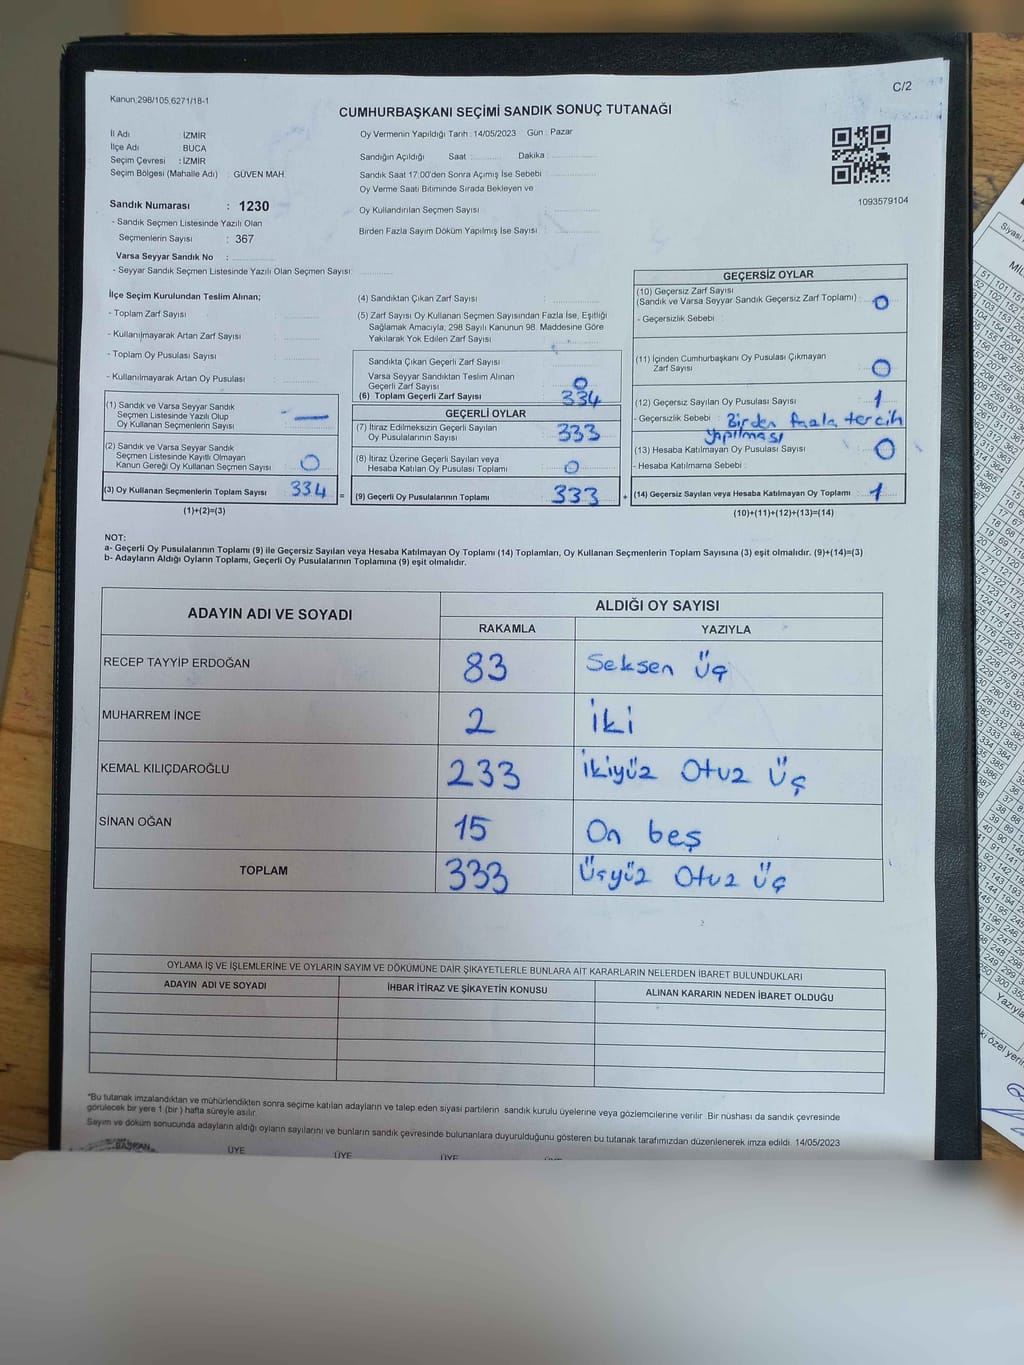 Kanun;298/105,6271/18-1
C/2
CUMHURBAŞKANI SEÇİMİ SANDIK SONUÇ TUTANAĞI
İl Adı : İZMİR
İlçe Adı : BUCA
Seçim Çevresi : İZMİR
Seçim Bölgesi (Mahalle Adı) : GÜVEN MAH.
Sandık Numarası : 1230
- Sandık Seçmen Listesinde Yazılı Olan
Seçmenlerin Sayısı : 367
Varsa Seyyar Sandık No :
- Seyyar Sandık Seçmen Listesinde Yazılı Olan Seçmen Sayısı:
Oy Vermenin Yapıldığı Tarih : 14/05/2023 Gün : Pazar
Sandığın Açıldığı Saat Dakika :
Sandık Saat 17:00'den Sonra Açımış İse Sebebi :
Oy Verme Saati Bitiminde Sırada Bekleyen ve
Oy Kullandırılan Seçmen Sayısı :
Birden Fazla Sayım Döküm Yapılmış İse Sayısı :
1093579104
İlçe Seçim Kurulundan Teslim Alınan;
- Toplam Zarf Sayısı :
- Kullanılmayarak Artan Zarf Sayısı :
- Toplam Oy Pusulası Sayısı :
- Kullanılmayarak Artan Oy Pusulası :
(1) Sandık ve Varsa Seyyar Sandık
Seçmen Listesinde Yazılı Olup
Oy Kullanan Seçmenlerin Sayısı :
(2) Sandık ve Varsa Seyyar Sandık
Seçmen Listesinde Kayıtlı Olmayan
Kanun Gereği Oy Kullanan Seçmen Sayısı : 0
(3) Oy Kullanan Seçmenlerin Toplam Sayısı 334 =
(1)+(2)=(3)
(4) Sandıktan Çıkan Zarf Sayısı :
(5) Zarf Sayısı Oy Kullanan Seçmen Sayısından Fazla İse, Eşitliği
Sağlamak Amacıyla, 298 Sayılı Kanunun 98. Maddesine Göre
Yakılarak Yok Edilen Zarf Sayısı :
Sandıkta Çıkan Geçerli Zarf Sayısı :
Varsa Seyyar Sandıktan Teslim Alınan
Geçerli Zarf Sayısı : 0
(6) Toplam Geçerli Zarf Sayısı : 334
GEÇERLİ OYLAR
(7) İtiraz Edilmeksizin Geçerli Sayılan
Oy Pusulalarının Sayısı : 333
(8) İtiraz Üzerine Geçerli Sayılan veya
Hesaba Katılan Oy Pusulası Toplamı : 0
(9) Geçerli Oy Pusulalarının Toplamı : 333 +
GEÇERSİZ OYLAR
(10) Geçersiz Zarf Sayısı
(Sandık ve Varsa Seyyar Sandık Geçersiz Zarf Toplamı) : 0
- Geçersizlik Sebebi :
(11) İçinden Cumhurbaşkanı Oy Pusulası Çıkmayan
Zarf Sayısı : 0
(12) Geçersiz Sayılan Oy Pusulası Sayısı : 1
- Geçersizlik Sebebi : Birden fazla tercih
yapılması
(13) Hesaba Katılmayan Oy Pusulası Sayısı : 0
- Hesaba Katılmama Sebebi :
(14) Geçersiz Sayılan veya Hesaba Katılmayan Oy Toplamı : 1
(10)+(11)+(12)+(13)=(14)
NOT:
a- Geçerli Oy Pusulalarının Toplamı (9) ile Geçersiz Sayılan veya Hesaba Katılmayan Oy Toplamı (14) Toplamları, Oy Kullanan Seçmenlerin Toplam Sayısına (3) eşit olmalıdır. (9)+(14)=(3)
b- Adayların Aldığı Oyların Toplamı, Geçerli Oy Pusulalarının Toplamına (9) eşit olmalıdır.
ADAYIN ADI VE SOYADI
ALDIĞI OY SAYISI
RAKAMLA YAZIYLA
RECEP TAYYİP ERDOĞAN 83 Seksen Üç
MUHARREM İNCE 2 İki
KEMAL KILIÇDAROĞLU 233 İkiyüz Otuz Üç
SİNAN OĞAN 15 On beş
TOPLAM 333 Üçyüz Otuz Üç
OYLAMA İŞ VE İŞLEMLERİNE VE OYLARIN SAYIM VE DÖKÜMÜNE DAİR ŞİKAYETLERLE BUNLARA AİT KARARLARIN NELERDEN İBARET BULUNDUKLARI
ADAYIN ADI VE SOYADI İHBAR İTİRAZ VE ŞİKAYETİN KONUSU ALINAN KARARIN NEDEN İBARET OLDUĞU
*Bu tutanak imzalandıktan ve mühürlendikten sonra seçime katılan adayların ve talep eden siyasi partilerin sandık kurulu üyelerine veya gözlemcilerine verilir. Bir nüshası da sandık çevresinde
görülecek bir yere 1 (bir) hafta süreyle asılır.
Sayım ve döküm sonucunda adayların aldığı oyların sayılarını ve bunların sandık çevresinde bulunanlara duyurulduğunu gösteren bu tutanak tarafımızdan düzenlenerek imza edildi. 14/05/2023
BAŞKAN ÜYE ÜYE ÜYE